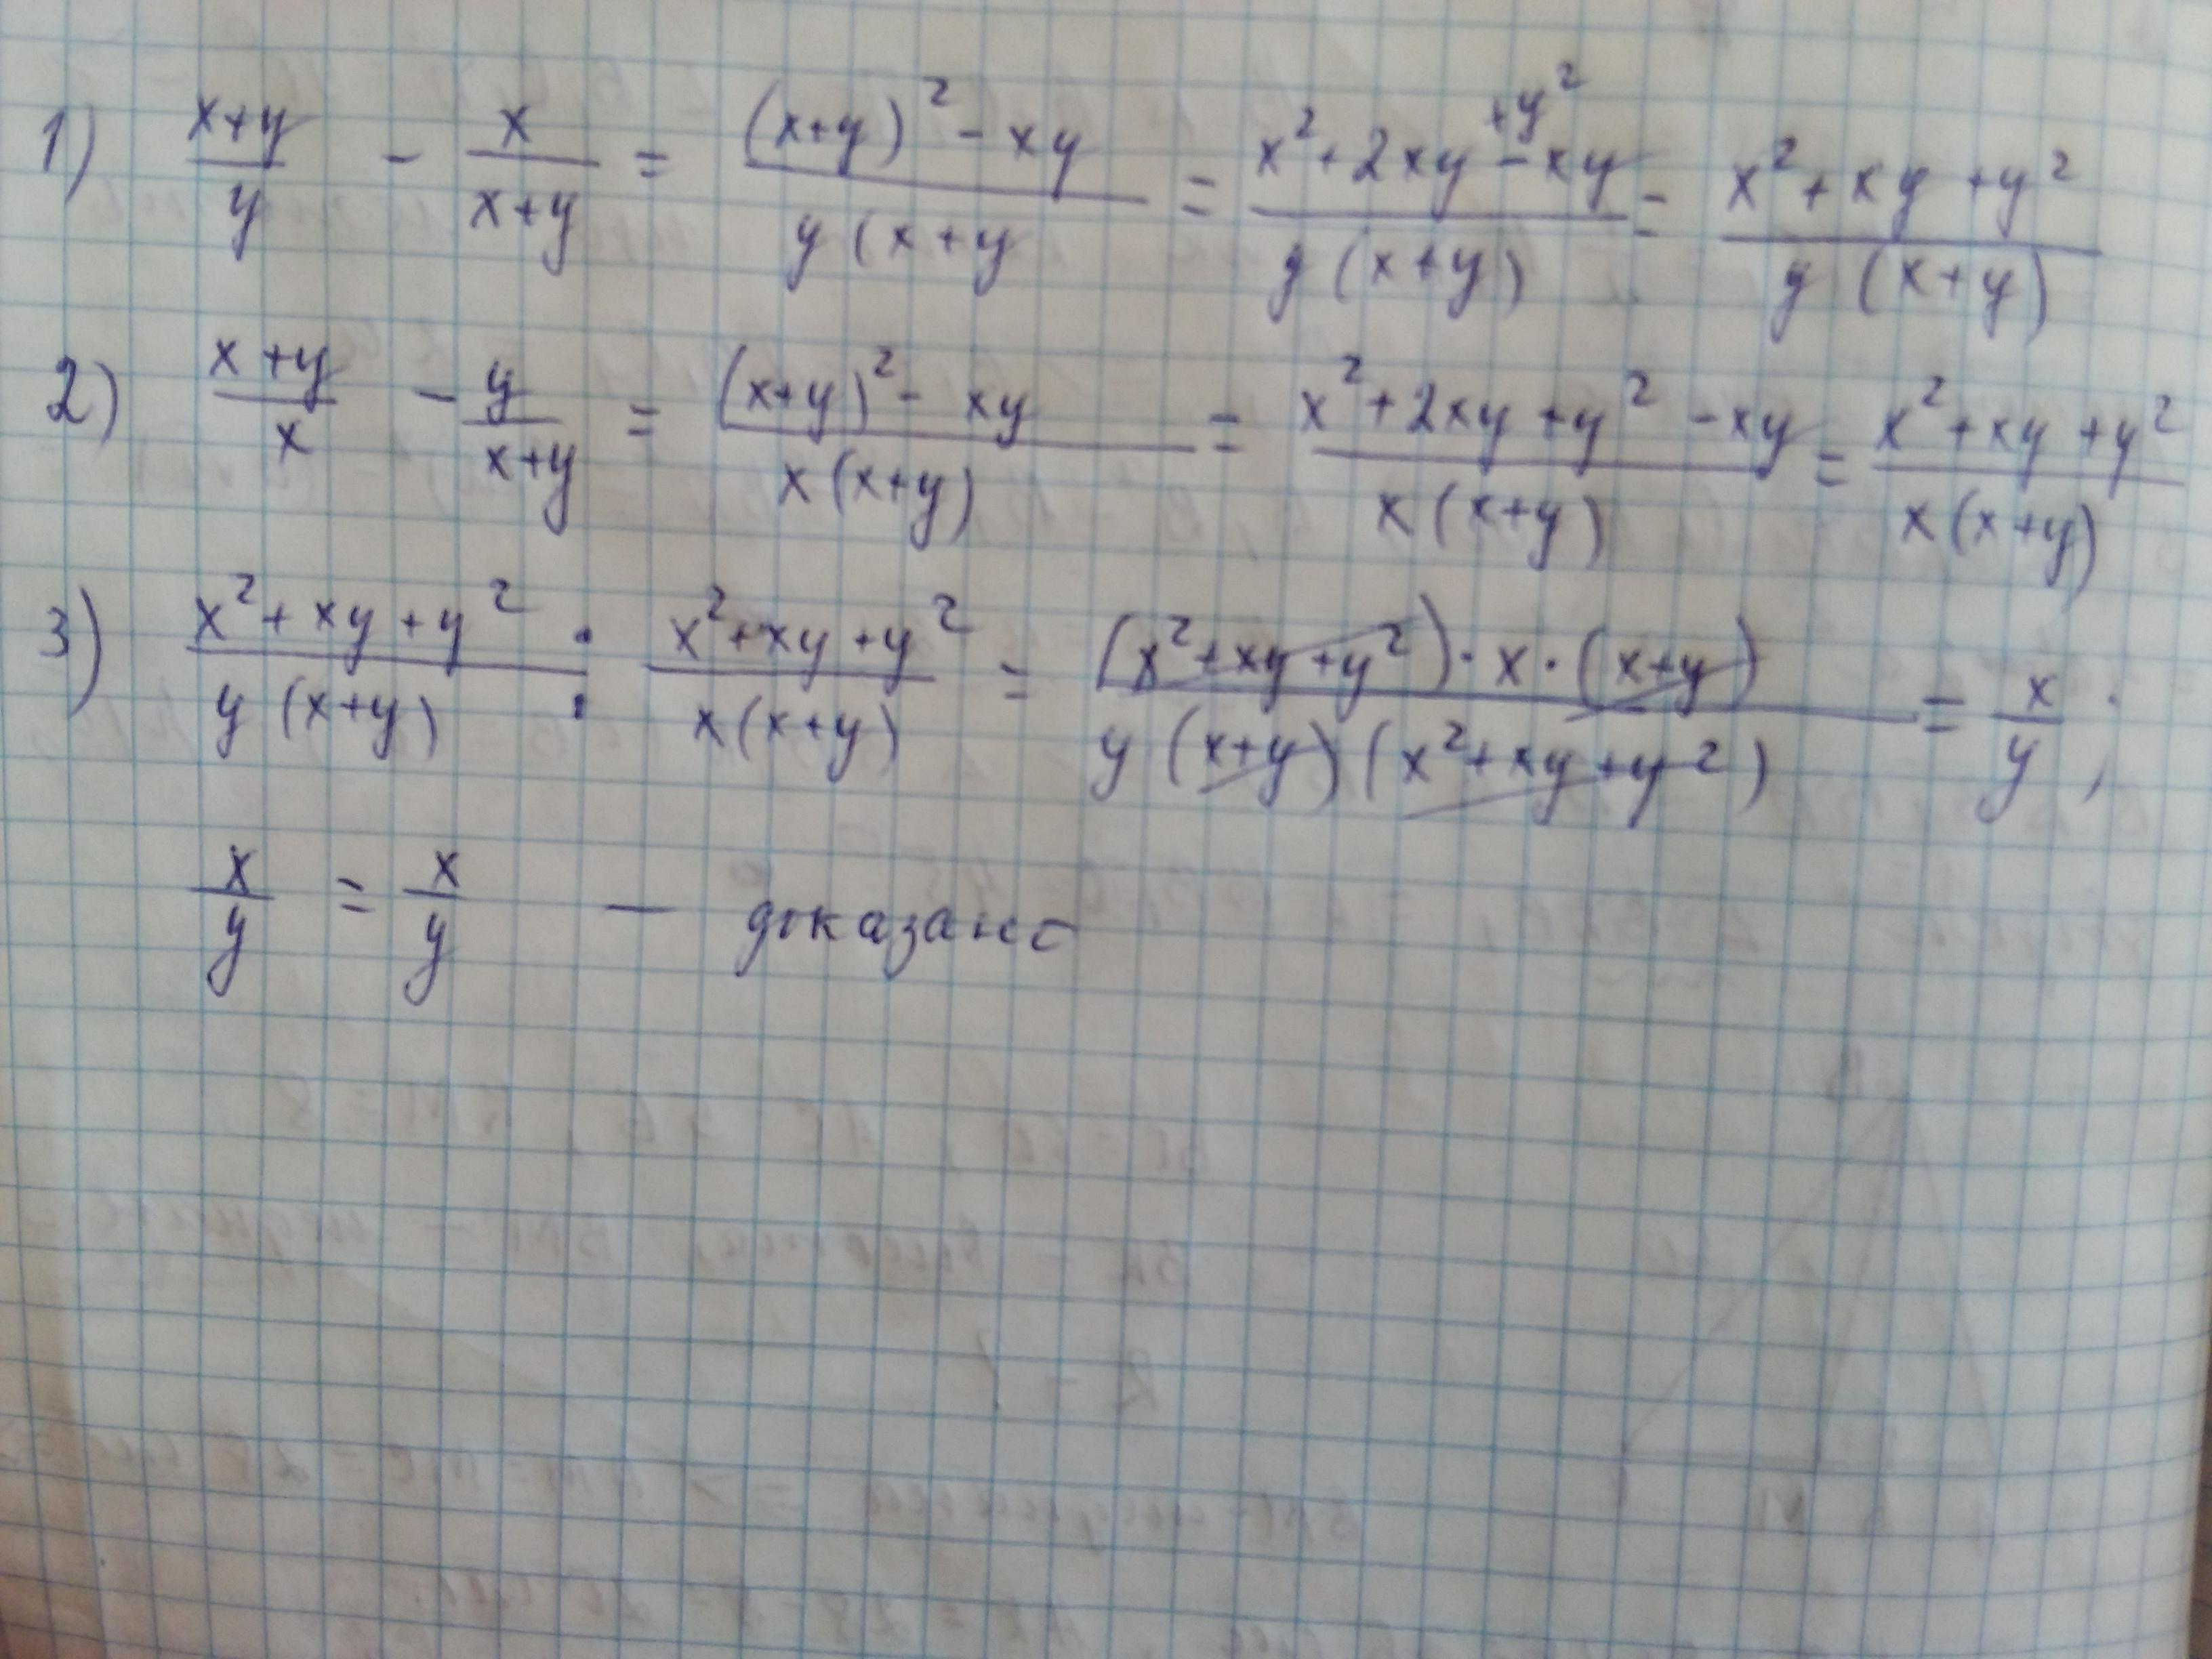 1) (x+y)/y - x/(x+y) = ((x+y)² - xy)/(y(x+y) = (x²+2xy+y²-xy)/(y(x+y)) = (x²+xy+y²)/(y(x+y))
2) (x+y)/x - y/(x+y) = ((x+y)² - xy)/(x(x+y)) = (x²+2xy+y²-xy)/(x(x+y)) = (x²+xy+y²)/(x(x+y))
3) (x²+xy+y²)/(y(x+y)) : (x²+xy+y²)/(x(x+y)) = ((x²+xy+y²)·x·(x+y))/(y(x+y)(x²+xy+y²)) = x/y;
x/y = x/y — доказано